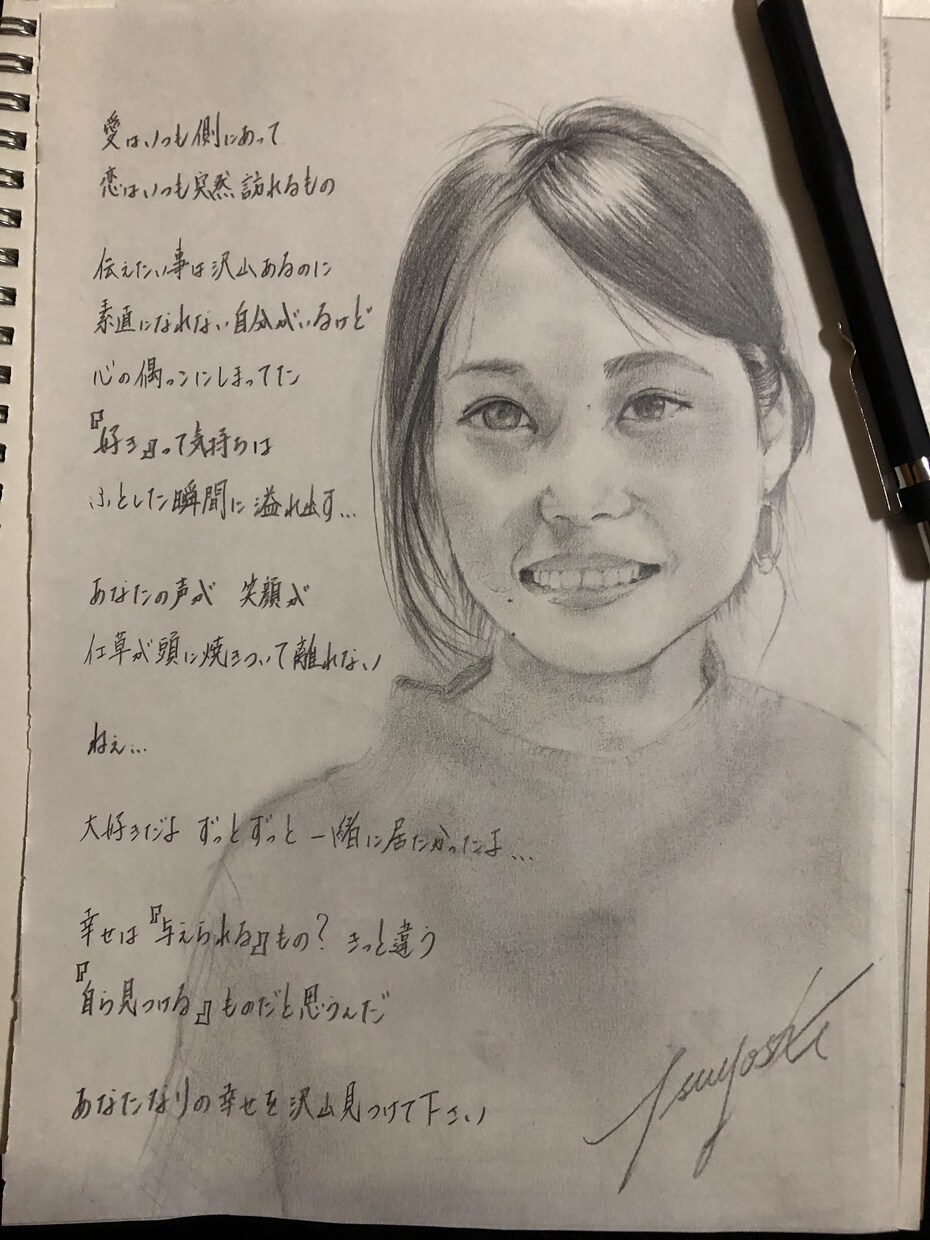 愛はいつも側にあって
恋はいつも突然訪れるもの
伝えたい事は沢山あるのに
素直になれない自分がいるけど
心の偶っこにしまってた
『好き』って気持ちは
ふとした瞬間に溢れ出す…
あなたの声が 笑顔が
仕草が頭に焼きついて離れない
ねぇ…
大好きだよ ずっとずっと一緒に居たかったよ…
幸せは『与えられる』もの? きっと違う
『自ら見つける』ものだと思うんだ
あなたなりの幸せを沢山見つけて下さい
Tsuyoshi